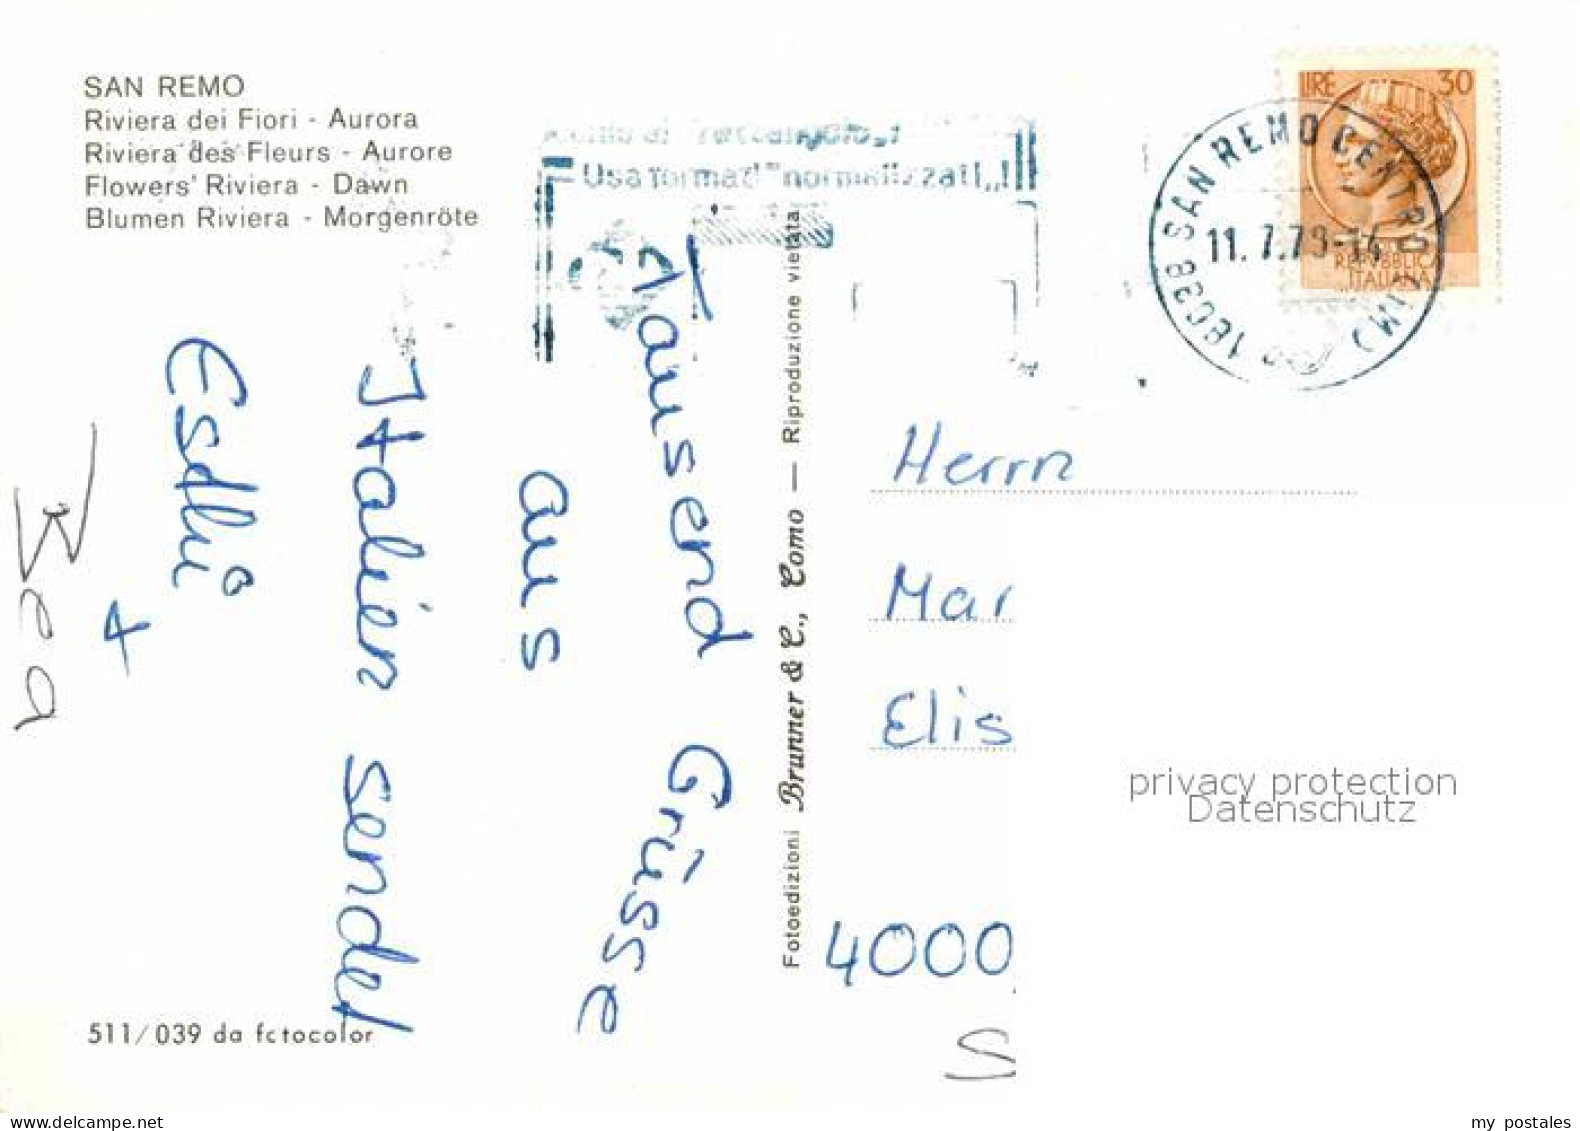 SAN REMO
Riviera dei Fiori - Aurora
Riviera des Fleurs - Aurore
Flowers' Riviera - Dawn
Blumen Riviera - Morgenröte
Usa formati "normalizzati"!
LIRE 30
REPVBBLICA
ITALIANA
18038 SAN REMO CENTRO (IM)
11.7.79-14
Tausend Grüsse
aus
Italien sendet
Esthi
+
Bea
Fotoedizioni Brunner & C., Como — Riproduzione vietata
Herrn
Mar
Elis
4000
S
privacy protection
Datenschutz
511/039 da fotocolor
delcampe.net
my postales